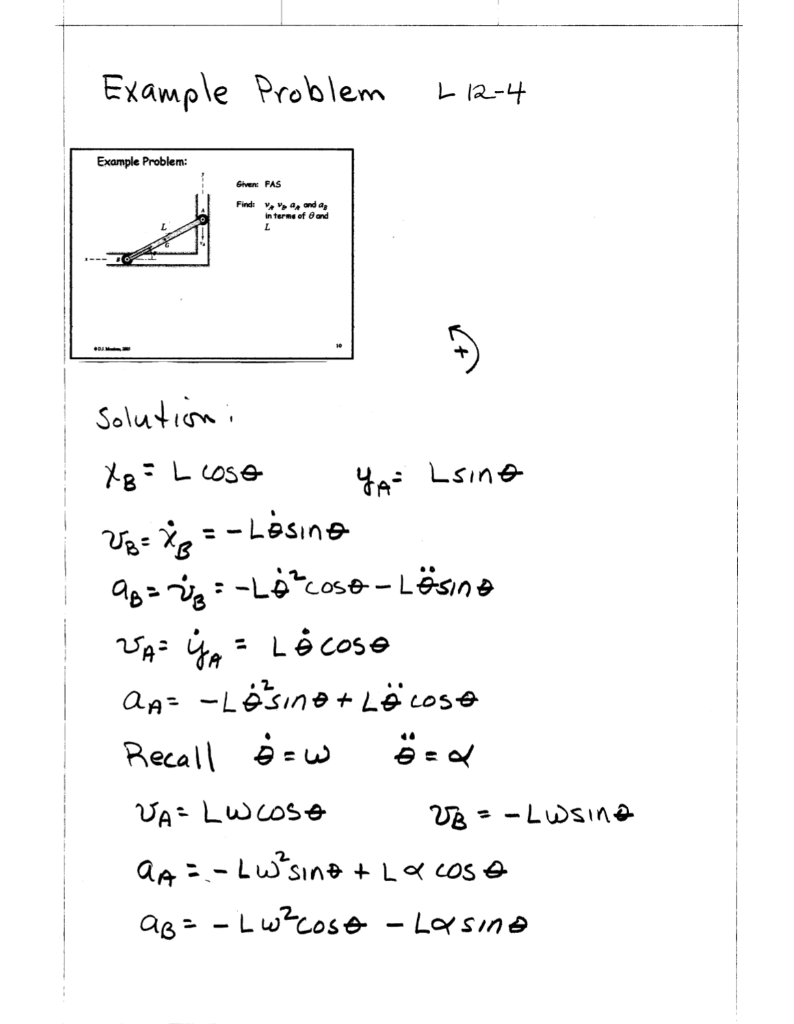 Example Problem L 12-4
Example Problem:
Given: PAS
Find: v_A, v_B, a_A and a_B
in terms of θ and
L
A
L
G
B
10
+
Solution:
x_B = L cosθ y_A = L sinθ
v_B = ẋ_B = -Lθ̇ sinθ
a_B = v̇_B = -Lθ̇² cosθ - Lθ̈ sinθ
v_A = ẏ_A = Lθ̇ cosθ
a_A = -Lθ̇² sinθ + Lθ̈ cosθ
Recall θ̇ = ω θ̈ = α
v_A = Lω cosθ v_B = -Lω sinθ
a_A = -Lω² sinθ + Lα cosθ
a_B = -Lω² cosθ - Lα sinθ